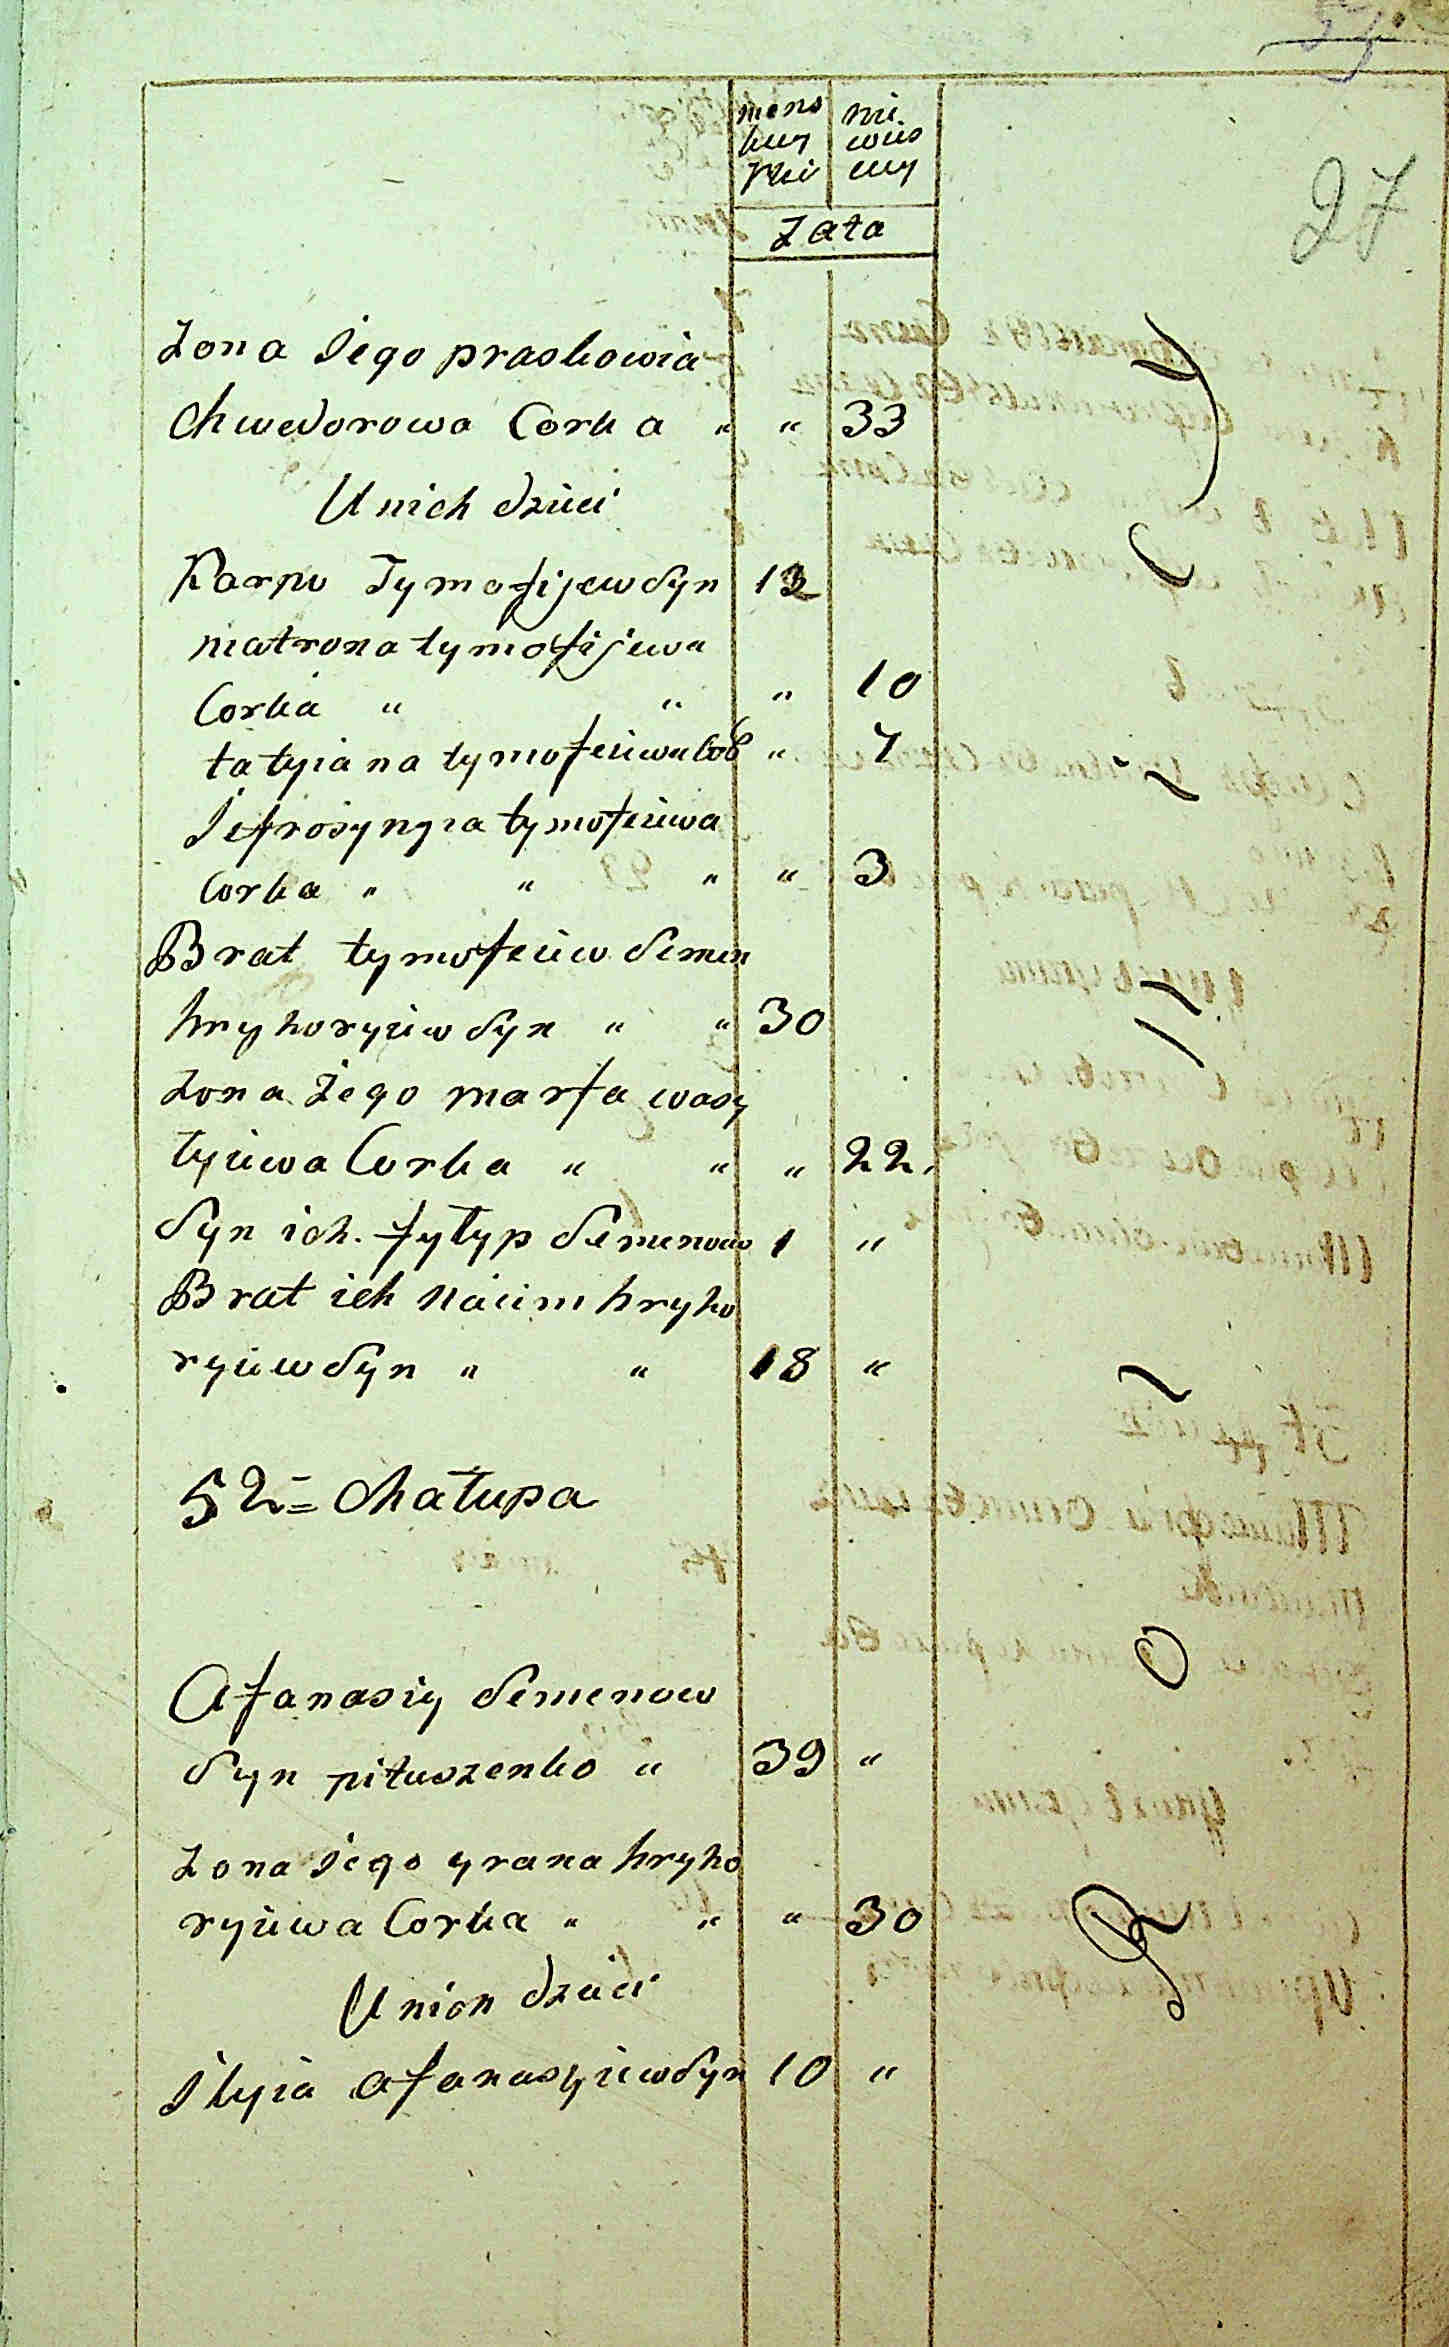 27
mens nie
kuy wias
Płci cuy
Łata
Żona Jego praskowia
Chwedorowa Corka " " 33
U nich dzieci
Karpo Tymofijew Syn 12
matrona tymofijewa
Corka " " " 10
tatyiana tymofeiewa Cor " 7
Jefrosynyia tymofeiewa
Corka " " " " 3
Brat tymofeiew Semen
hryhoryiew Syn " " 30
Żona Jego marfa wasy
łyiewa Corka " " " 22.
Syn ich. fyłyp Semenow 1 "
Brat ich naum hryho
ryiew Syn " " 18 "
52 = Chałupa
Afanasiy Semenow
Syn pituszenko " 39 "
Żona Jego yrana hryho
ryiewa Corka " " " 30
U nich dzieci
Jlyia afanasyiew Syn 10 "